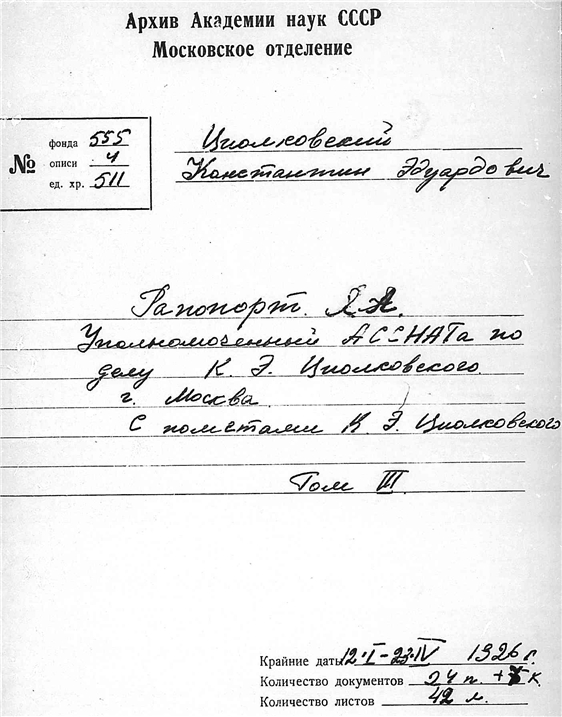 Архив Академии наук СССР
Московское отделение
№
фонда 555
описи 4
ед. хр. 511
Циолковский
Константин Эдуардович
Рапопорт Я. А.
Уполномоченный АССНАТа по
делу К. Э. Циолковского
г. Москва
С пометами К. Э. Циолковского
Том III.
Крайние даты 12.I-23.IV 1926 г.
Количество документов 24 п. + К
Количество листов 42 л.